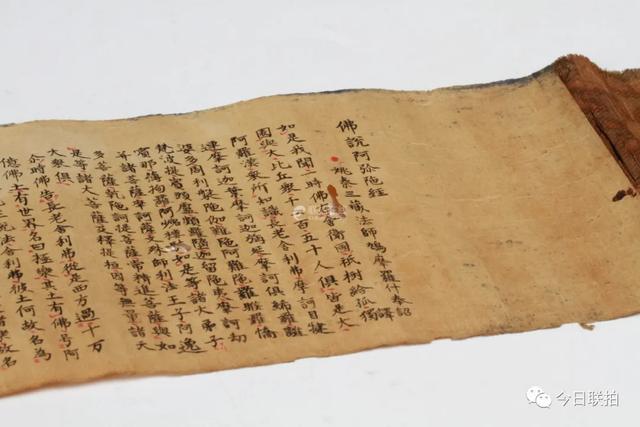 佛說阿弥陁經
姚秦三藏法師鳩摩羅什奉詔譯
如是我聞一時佛在舍衛國祇樹給孤獨
園與大比丘衆千二百五十人俱皆是大
阿羅漢衆所知識長老舍利弗摩訶目犍
連摩訶迦葉摩訶迦旃延摩訶俱絺羅離
婆多周利槃陁伽羅陁阿難陁羅睺羅憍
梵波提賓頭盧頗羅墮迦留陁夷摩訶劫
賓那薄拘羅阿㝹樓馱如是等諸大弟子
并諸菩薩摩訶薩文殊師利法王子阿逸
多菩薩乾陁訶提菩薩常精進菩薩與如
是等諸大菩薩及釋提桓因等無量諸天
大衆俱
尒時佛告長老舍利弗從是西方過十万
億佛土有世界名曰極樂其土有佛号阿
說法舍利弗彼土何故名為
故名
今日联拍